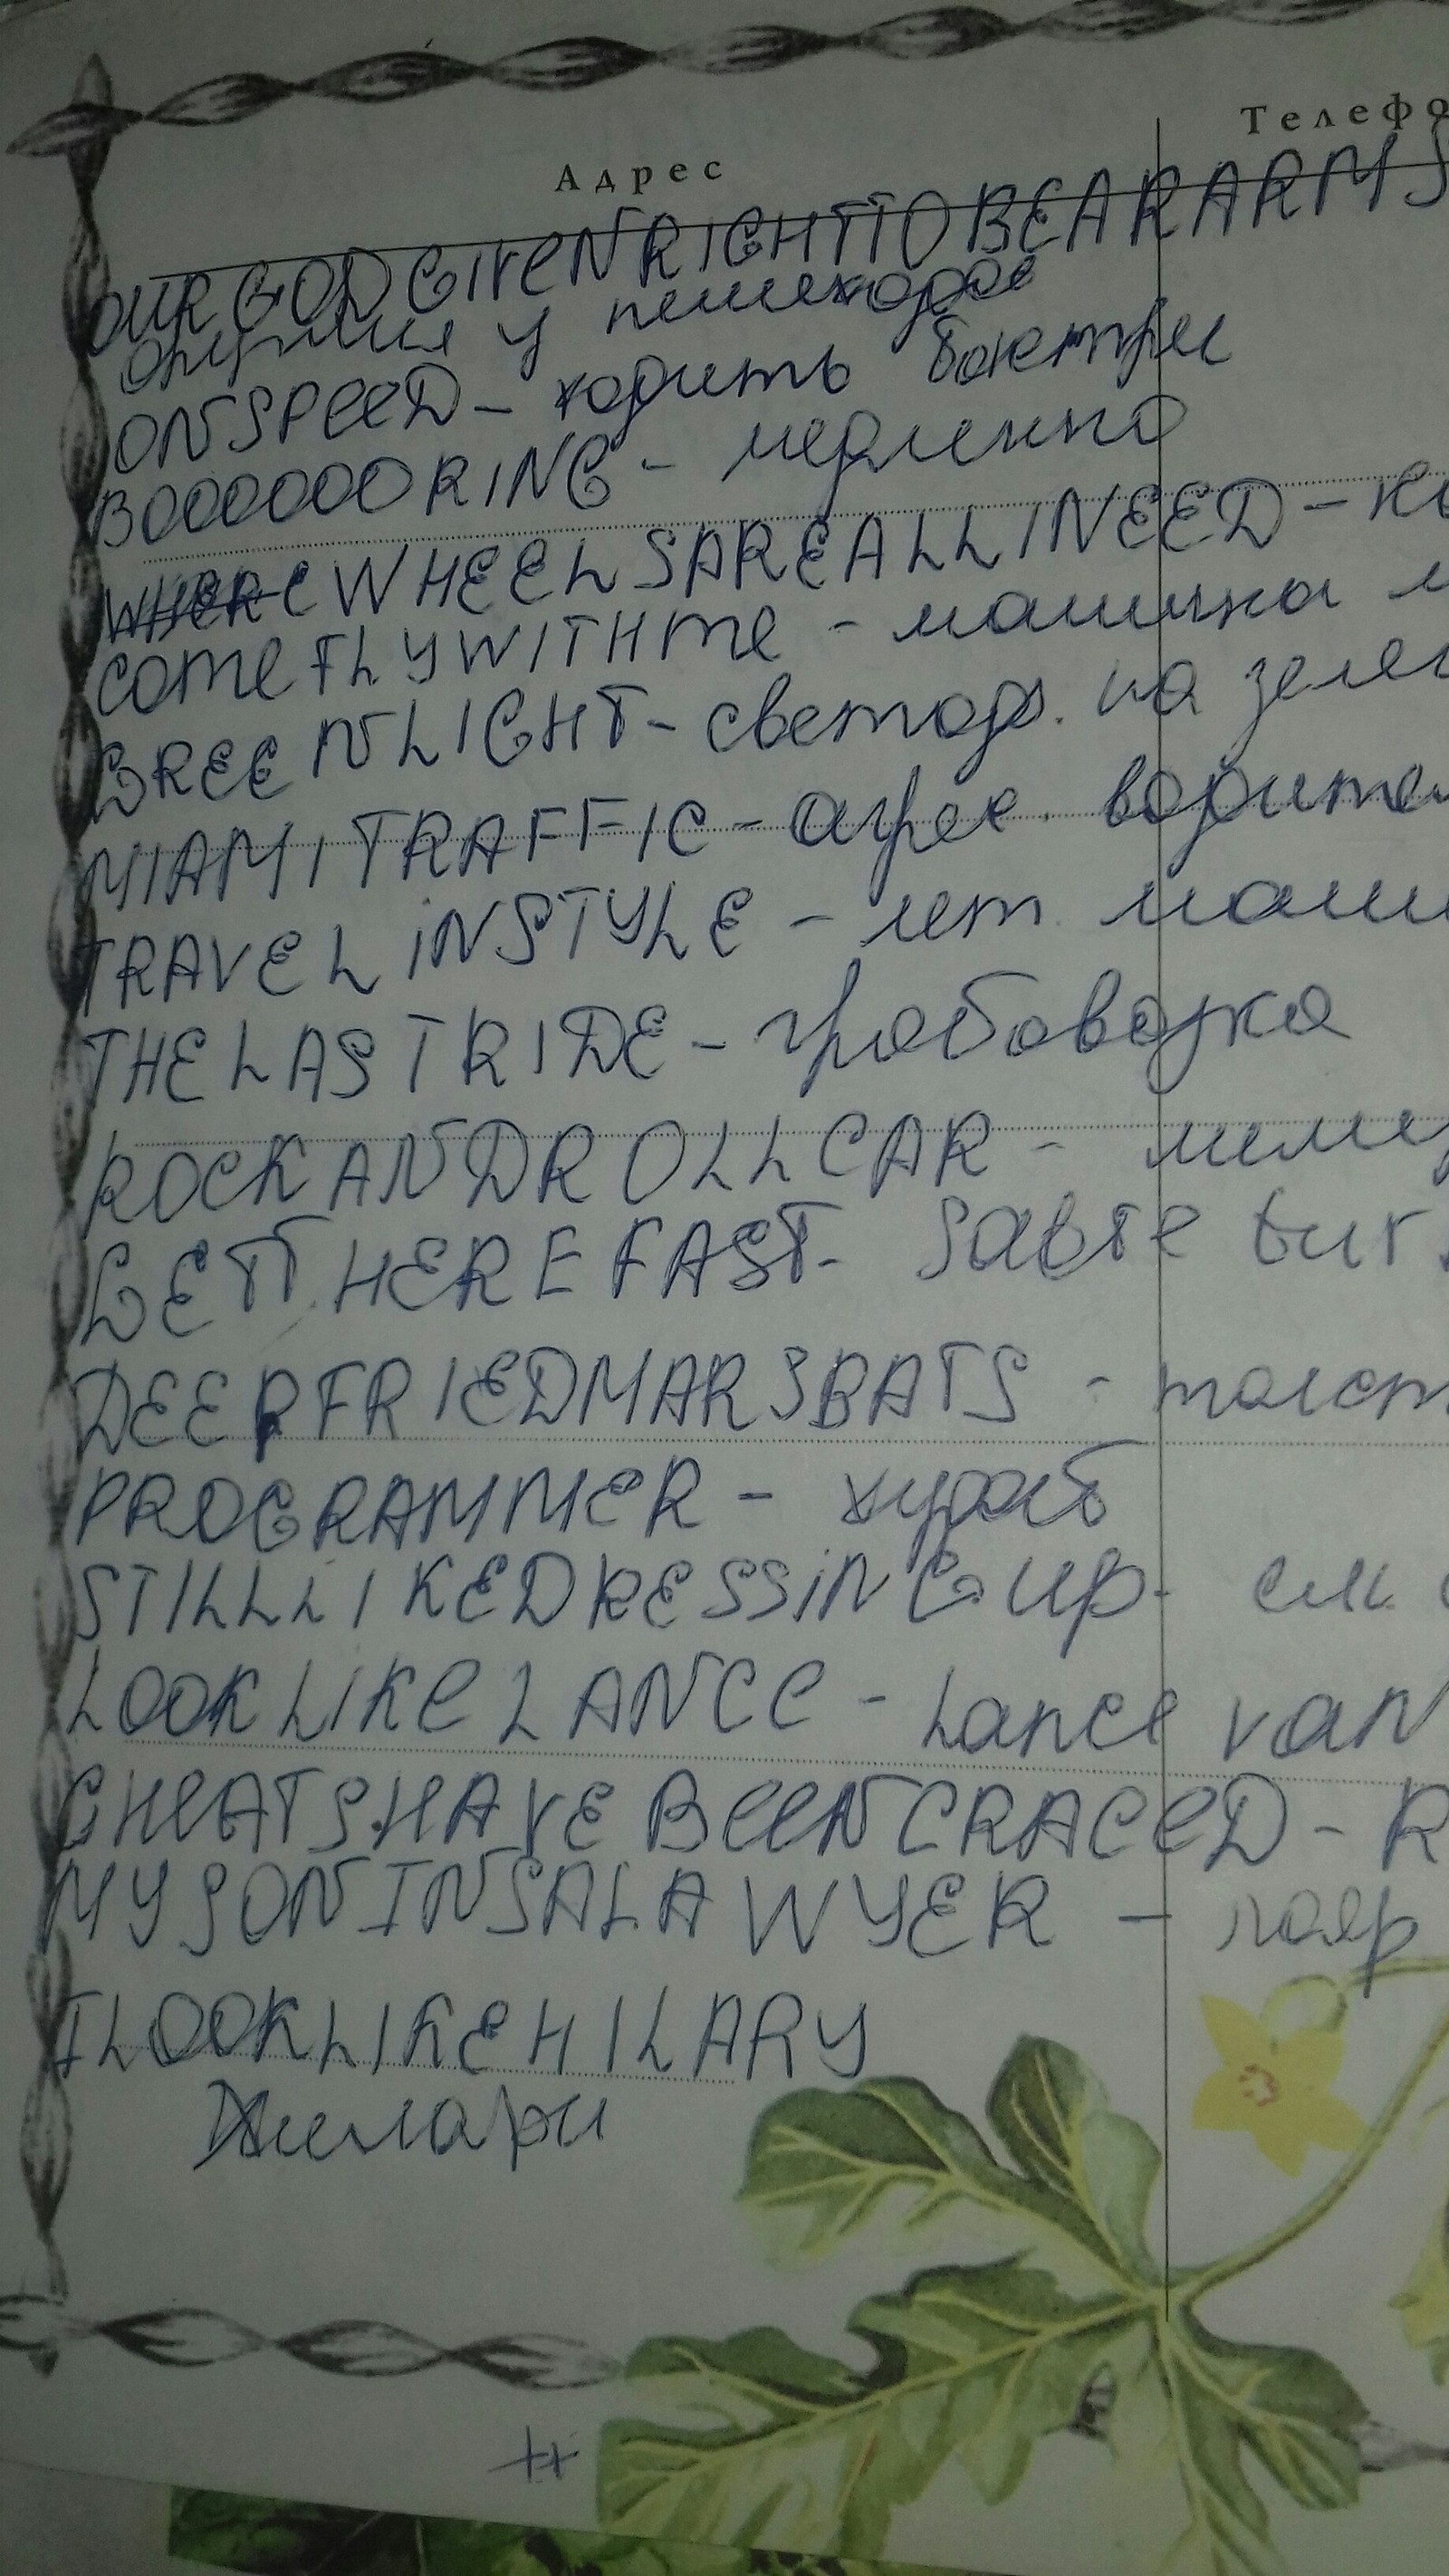 Адрес
Телефо
OURGODGIVENRIGHTTOBEARARMS
оружия у пешеходов
ONSPEED - ходить быстрее
BOOOOOORING - медленно
WHEELSAREALLINEED - к
COMEFLYWITHME - машинка л
GREENLIGHT - светоф. на зелен
MIAMITRAFFIC - агрес. водител
TRAVELINSTYLE - лет. маши
THELASTRIDE - гробовозка
ROCKANDROLLCAR - лиму
GETTHEREFAST - Sabre tur
DEEPFRIEDMARSBATS - толст
PROGRAMMER - худоб
STILLLIKEDRESSINGUP -
LOOKLIKELANCE - Lance van
CHEATSHAVEBEENCRACED - R
MYSONINSALAWYER -
ILOOKLIKEHILARY
Хилари